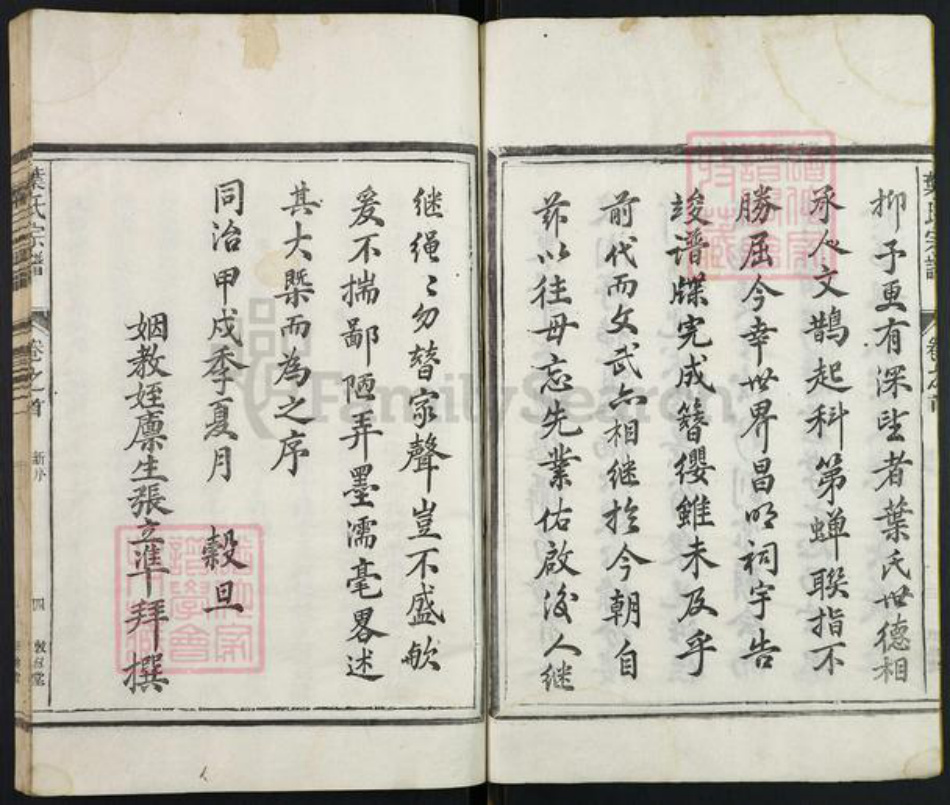 抑予更有深望者葉氏世德相
承人文鵲起科第蟬聯指不
勝屈今幸世界昌明祠宇告
竣譜牒完成簪纓雖未及乎
前代而文武亦相继於今朝自
茲以往毋忘先業佑啟後人继
继绳〻勿替家聲豈不盛歟
爰不揣鄙陋弄墨濡毫畧述
其大槩而為之序
同治甲戌季夏月 穀旦
姻教姪廪生張立準拜撰
葉氏宗譜
卷之首
新序
四
葉氏宗譜
卷之首
FamilySearch